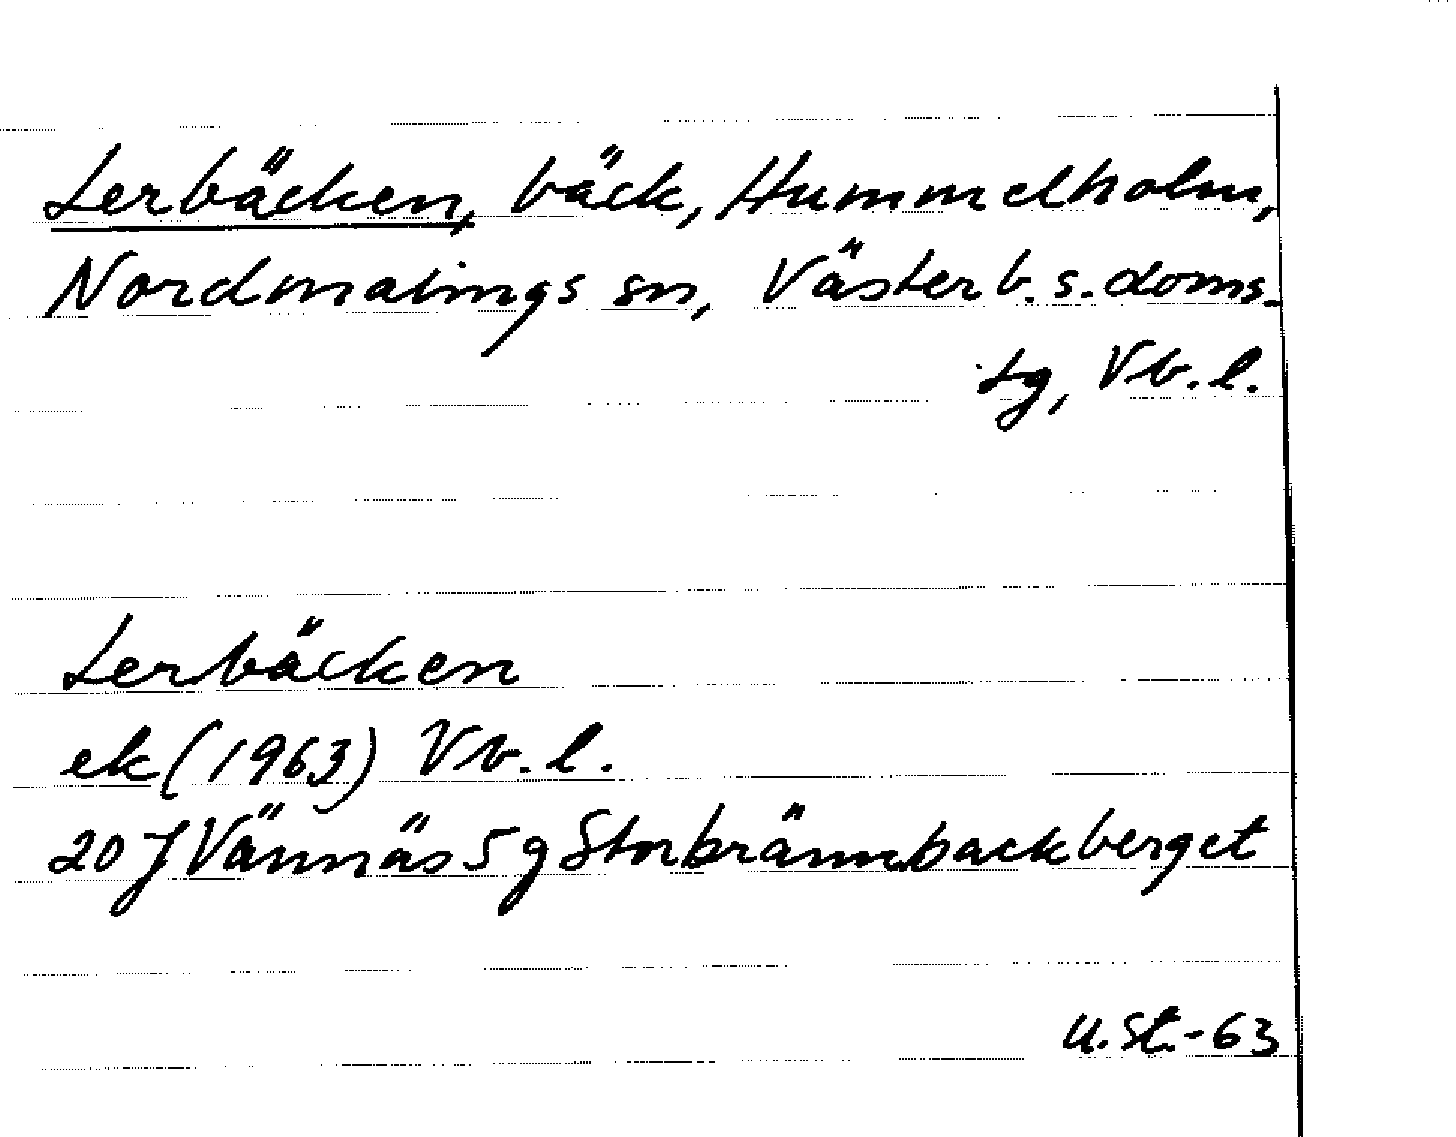 Lerbäcken, bäck, Hummelholm,
Nordmalings sn, Västerb. s. doms.
tg, Vb. l.
Lerbäcken
ek (1963) Vb. l.
20 J Vännäs 5 g Storbrännbackberget
U. St.-63